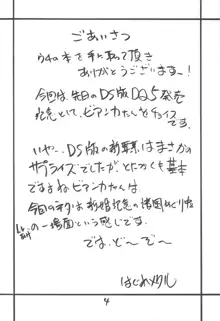 ごあいさつ
ウチの本を手に取って頂き
ありがとうございますー!
今回は先日のDS版DQ5発売
記念として、ビアンカたんをチョイス
です。
いやー、DS版の新要素はまさかの
サプライズでしたが とにかくも基本
ですよねビアンカたんは。
今回のネタは新婚記念の
の一場面という感じです。
では、ど〜ぞ〜
はじめメタル
4